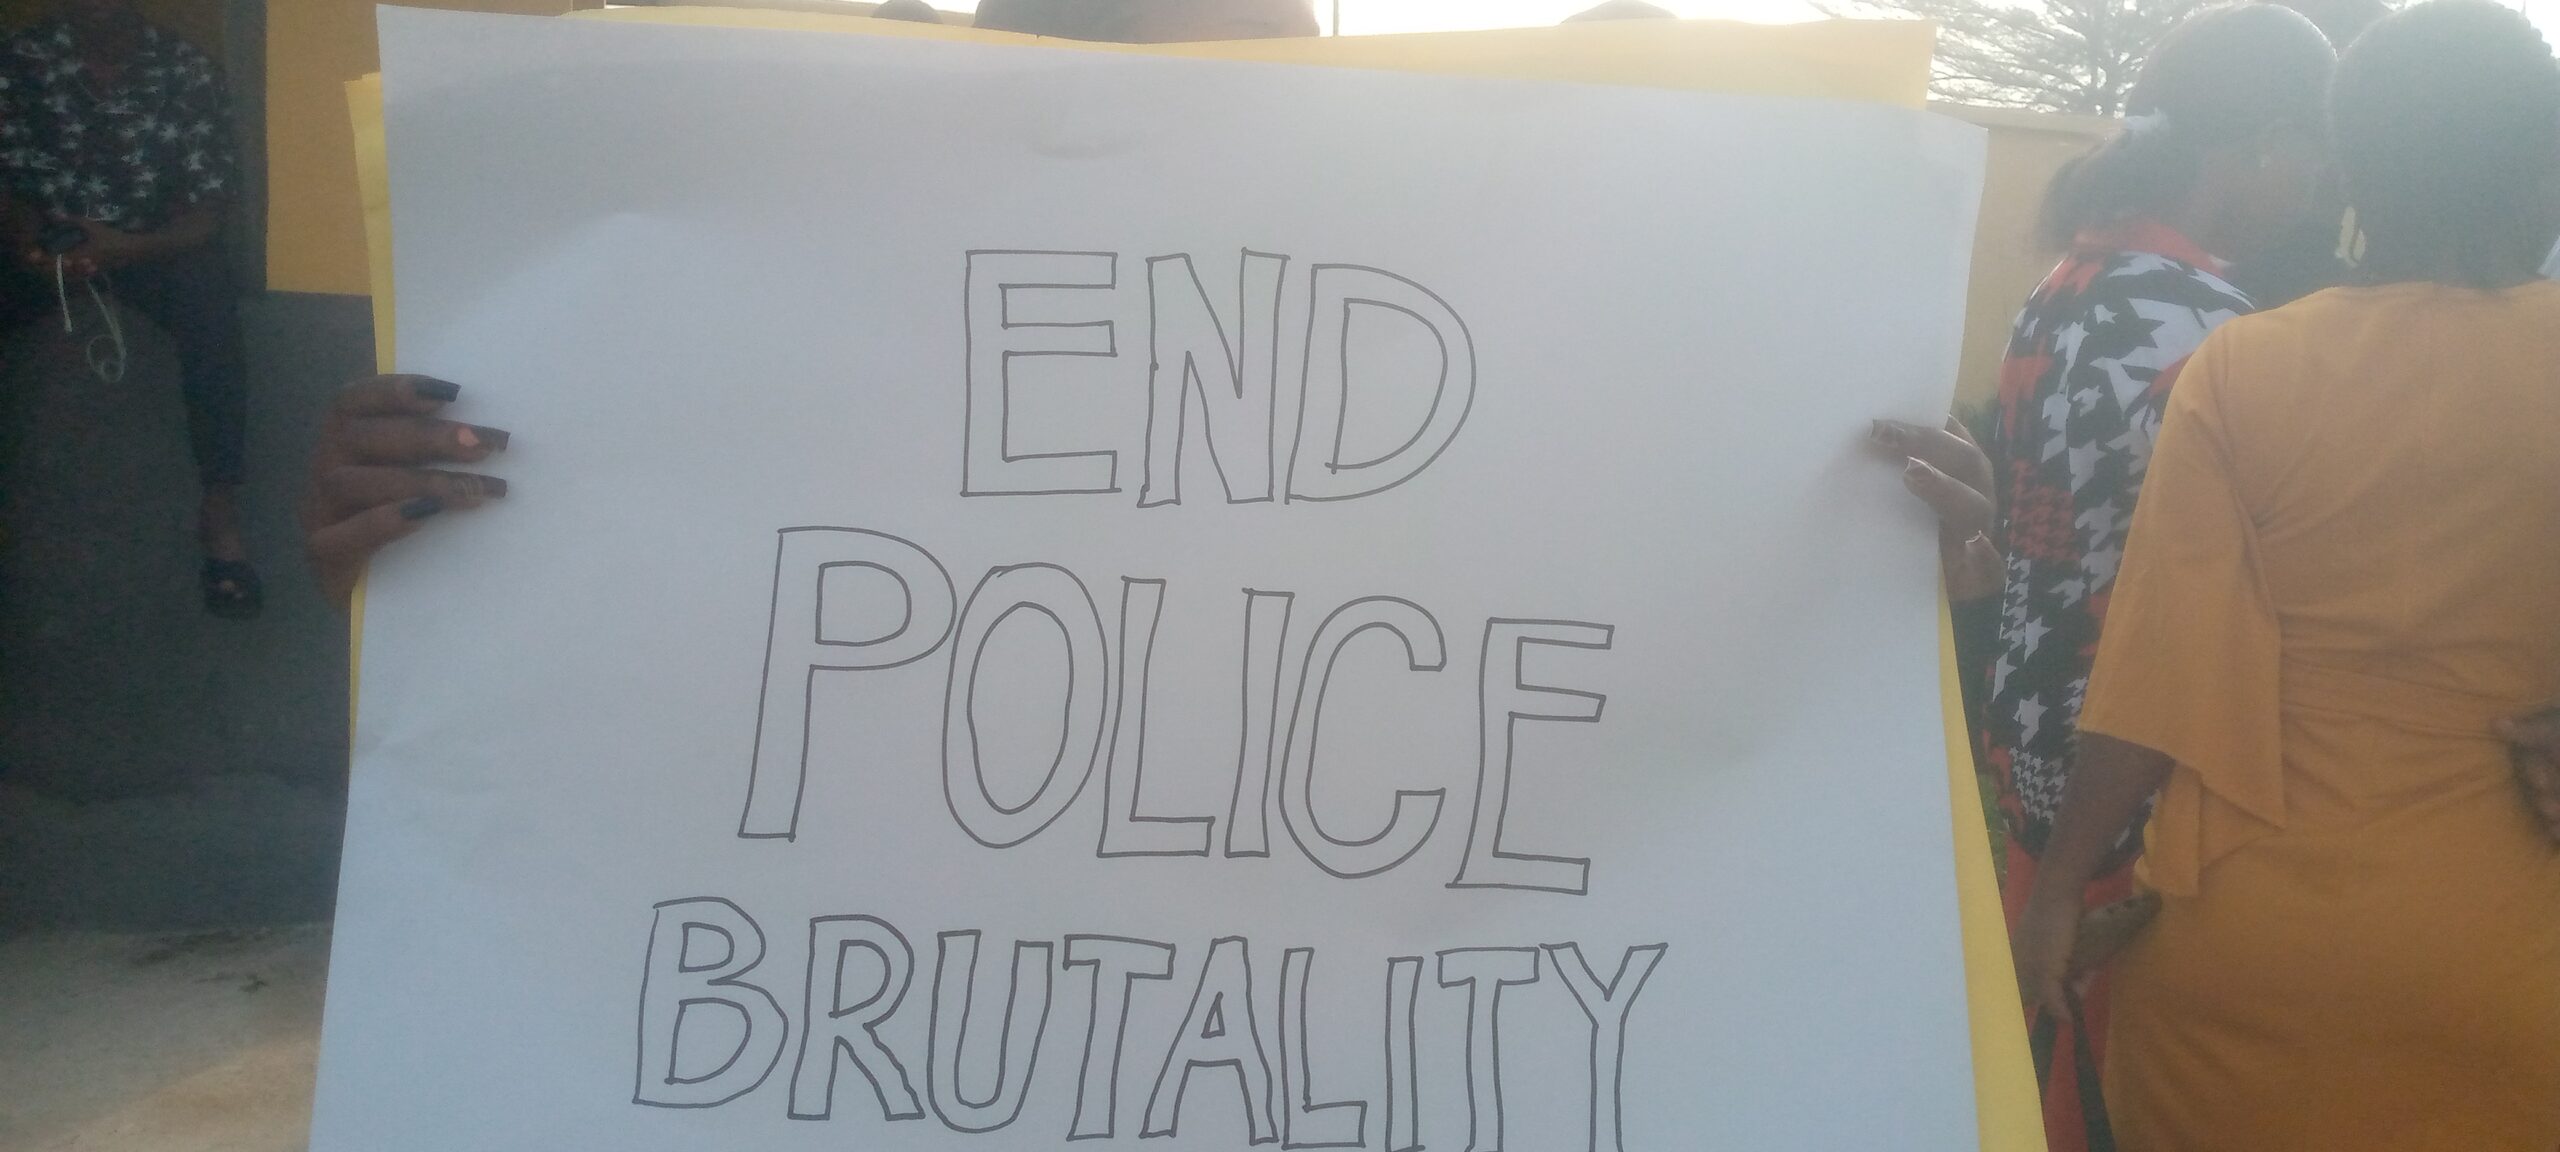 END
POLICE
BRUTALITY